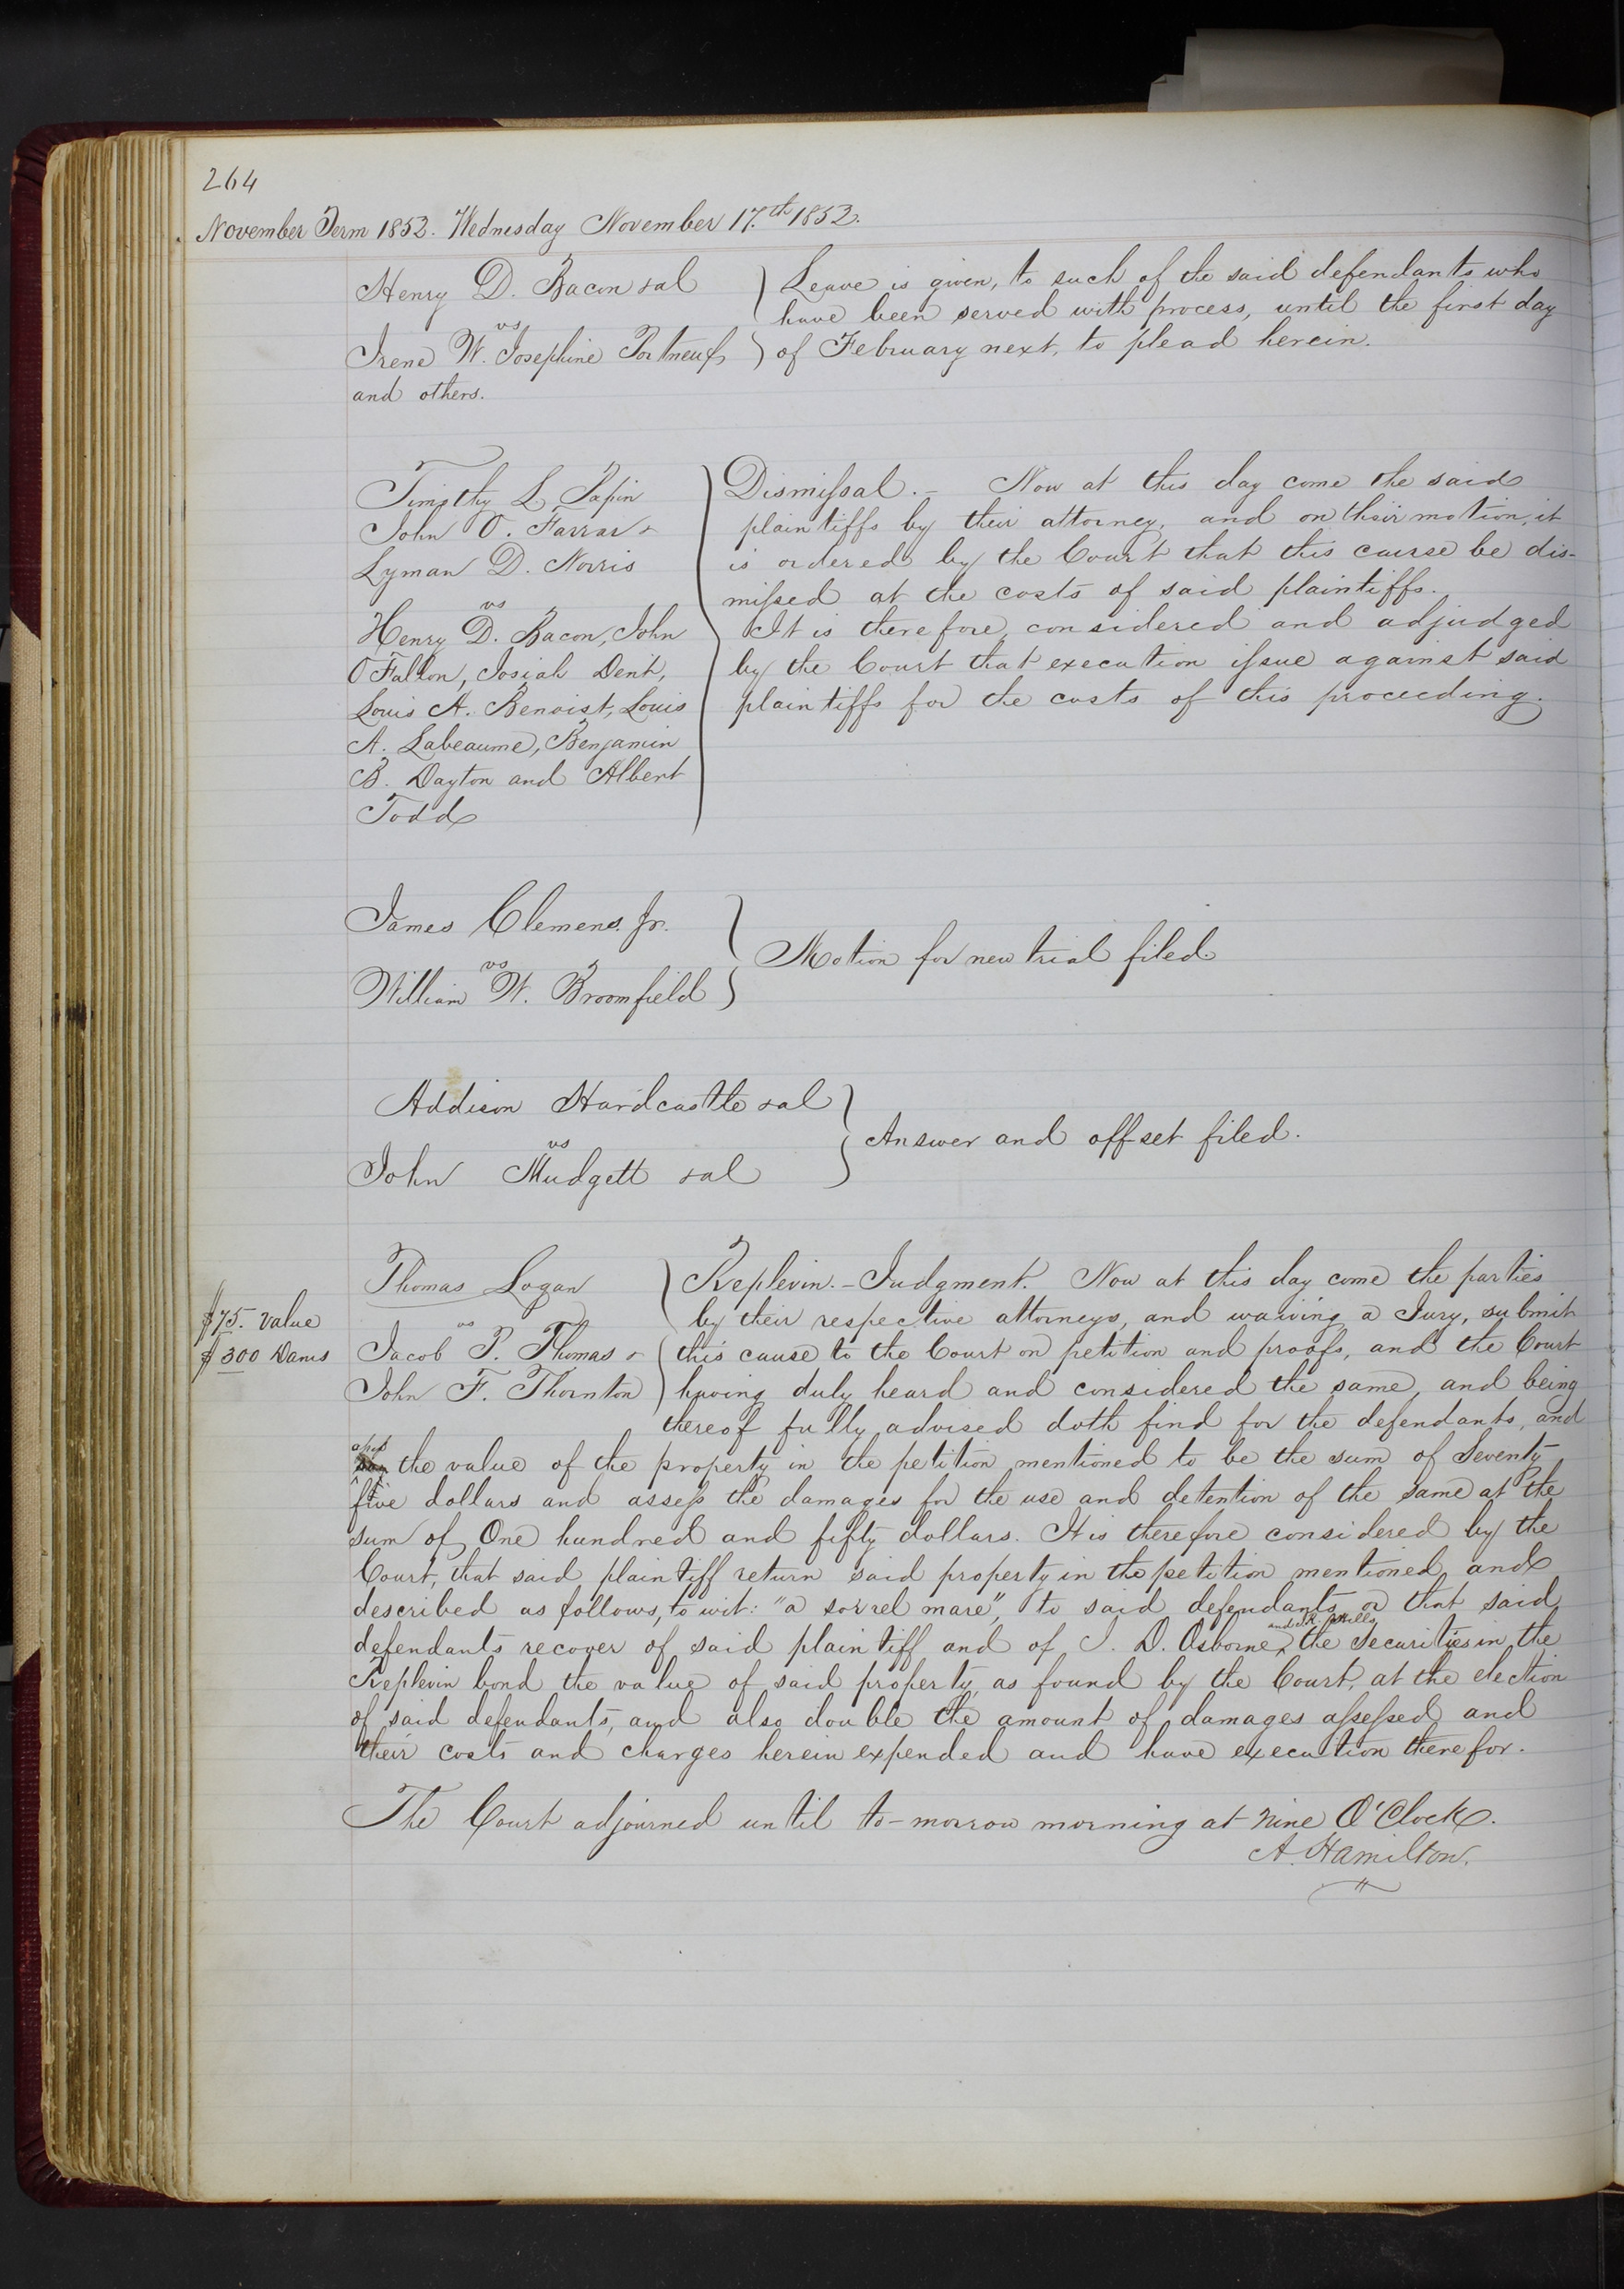 264
November Term 1852. Wednesday November 17.th 1852.
Henry D. Bacon &al
vs
Irene W. Josephine Portneuf
and others.
Leave is given, to such of the said defendants who
have been served with process, until the first day
of February next, to plead herein.
Timothy L. Papin
John O. Farrar &
Lyman D. Norris
vs
Henry D. Bacon, John
O'Fallon, Josiah Dent,
Louis A. Benoist, Louis
A. Labeaume, Benjamin
B. Dayton and Albert
Todd
Dismissal. - Now at this day come the said
plaintiffs by their attorney, and on their motion, it
is ordered by the Court that this cause be dis-
missed at the costs of said plaintiffs.
It is therefore considered and adjudged
by the Court that execution issue against said
plaintiffs for the costs of this proceeding.
James Clemens Jr.
vs
William W. Broomfield
Motion for new trial filed
Addison Hardcastle &al
vs
John Mudgett &al
Answer and offset filed.
$75. value
$300 Dams
Thomas Logan
vs
Jacob P. Thomas &
John F. Thornton
Replevin. - Judgment. Now at this day come the parties
by their respective attorneys, and waiving a Jury, submit
this cause to the Court on petition and proofs, and the Court
having duly heard and considered the same, and being
thereof fully advised doth find for the defendants, and
the value of the property in the petition mentioned to be the sum of Seventy
five dollars and assess the damages for the use and detention of the same at the
sum of One hundred and fifty dollars. It is therefore considered by the
Court, that said plaintiff return said property in the petition mentioned and
described as follows, to wit: "a sorrel mare", to said defendants or that said
defendants recover of said plaintiff and of J. D. Osborne and the Securities in the
Replevin bond the value of said property, as found by the Court, at the election
of said defendants, and also double the amount of damages assessed and
their costs and charges herein expended and have execution therefor.
The Court adjourned until to-morrow morning at nine O'Clock.
A. Hamilton.